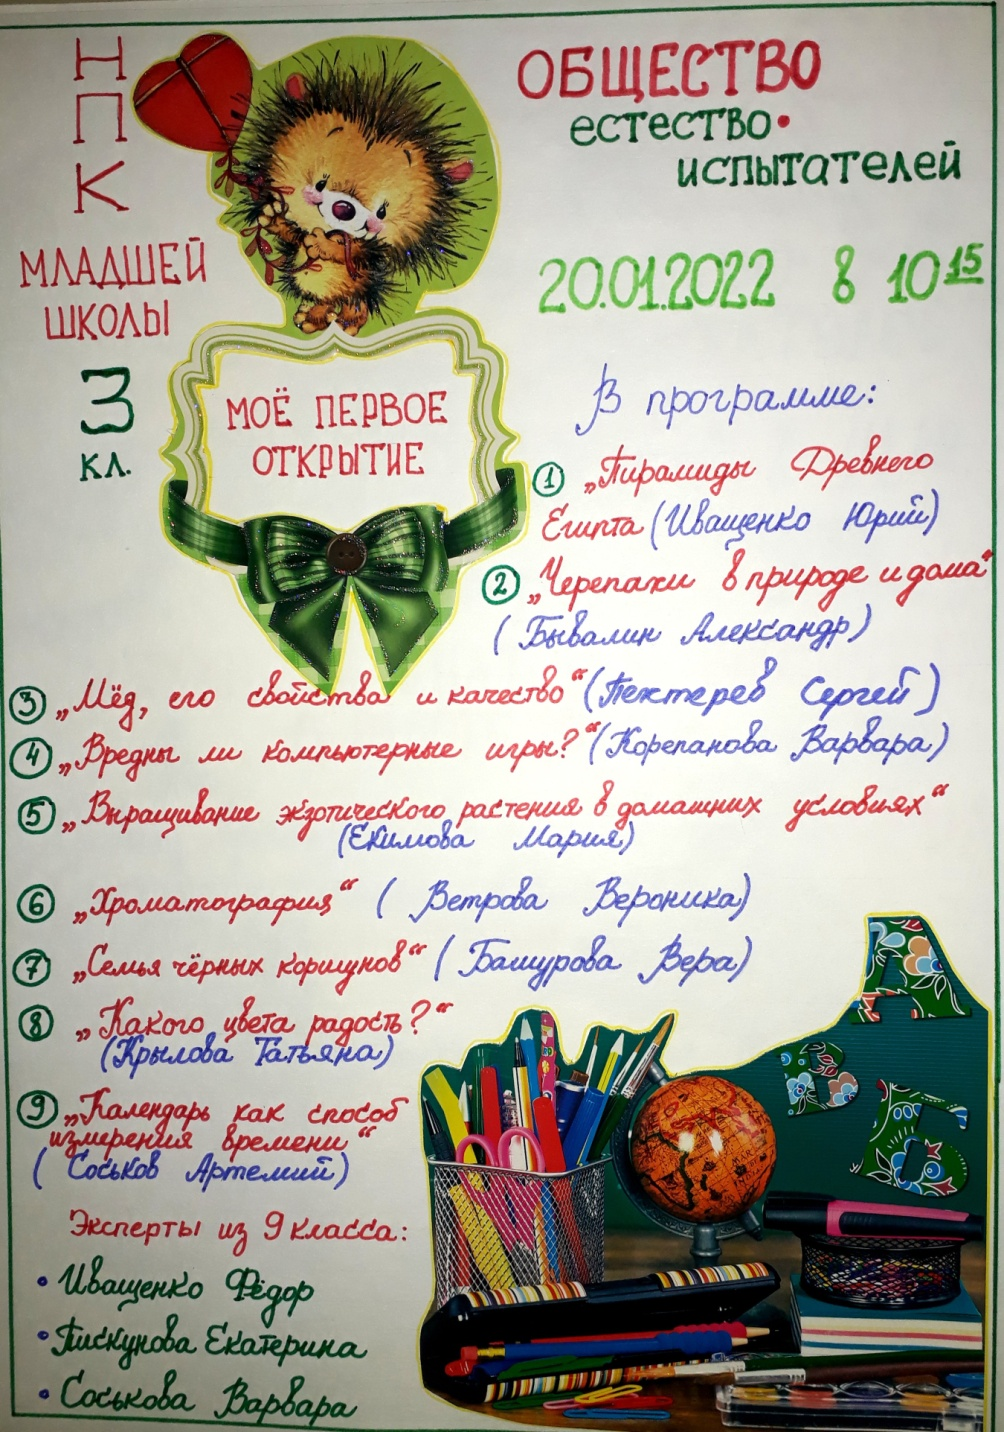 Н
П
К
МЛАДШЕЙ
ШКОЛЫ
3
КЛ.
МОЁ ПЕРВОЕ
ОТКРЫТИЕ
ОБЩЕСТВО
естество•
испытателей
20.01.2022 в 10 15
В программе:
1 „Пирамиды Древнего
Египта (Иващенко Юрий)
2 „Черепахи в природе и дома“
(Бывалин Александр)
3 „Мёд, его свойства и качество“ (Пехтерев Сергей)
4 „Вредны ли компьютерные игры?“ (Корепанова Варвара)
5 „Выращивание экзотического растения в домашних условиях“
(Екимова Мария)
6 „Хроматография“ (Ветрова Вероника)
7 „Семья чёрных коршунов“ (Башурова Вера)
8 „Какого цвета радость?“
(Крылова Татьяна)
9 „Календарь как способ
измерения времени“
(Соськов Артемий)
Эксперты из 9 класса:
• Иващенко Фёдор
• Пискунова Екатерина
• Соськова Варвара
А
В
Б